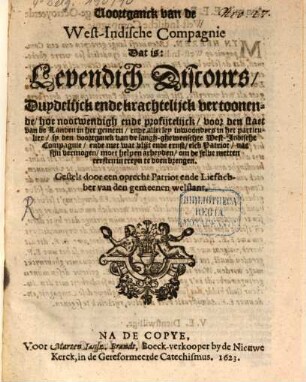 Voortganck van de
West-Indische Compagnie
Dat is:
Levendich Discours/
Duydelijck ende krachtelijck vertoonen-
de/ hoe nootwendigh ende profijtelijck/ voor den staet
van de Landen in het gemeen/ ende alderley Inwoonders in het particu-
lier/ zy den voortganck van de langh-ghewenschte West-Indische
Compagnie/ ende met wat vlijt ende ernst/ elck Patriot/ nae
zijn vermogen/ moet helpen arbeyden/ om de selve metten
eersten in treyn te doen brengen.
Gestelt door een oprecht Patriot ende Liefheb-
ber van den gemeenen welstant.
BIBLIOTHECA
REGIA
NA DE COPYE,
Voor Marten Jansz. Brandt, Boeck-verkooper by de Nieuwe
Kerck, in de Gereformeerde Catechismus. 1623.